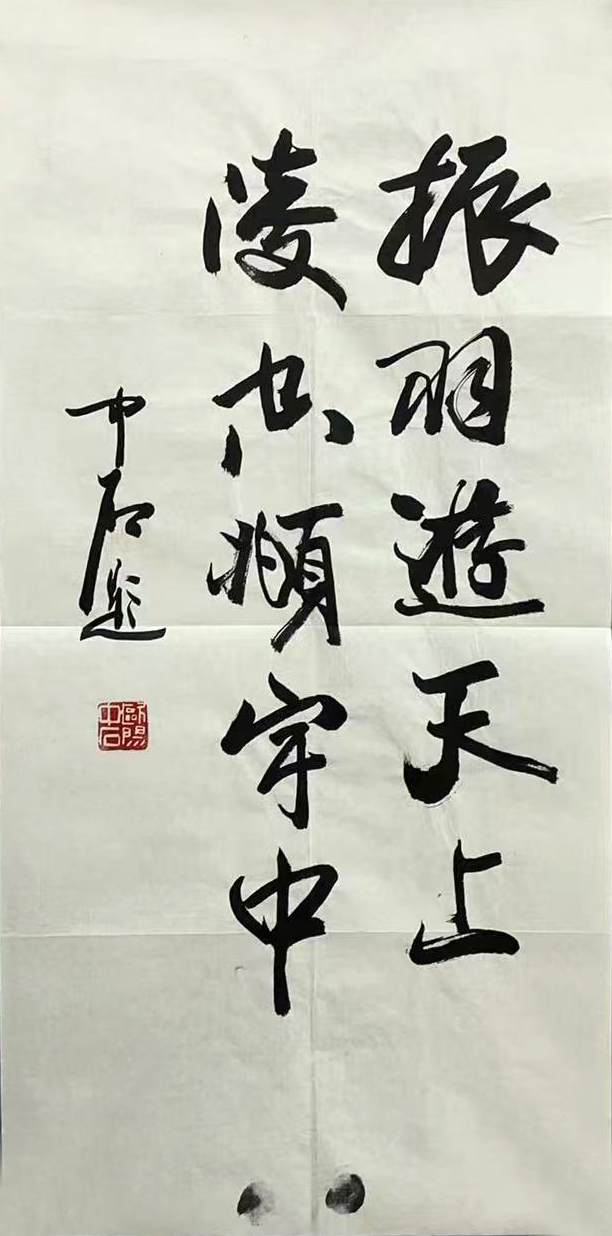 振羽遊天上
凌虛頫宇中
中石題
歐陽中石